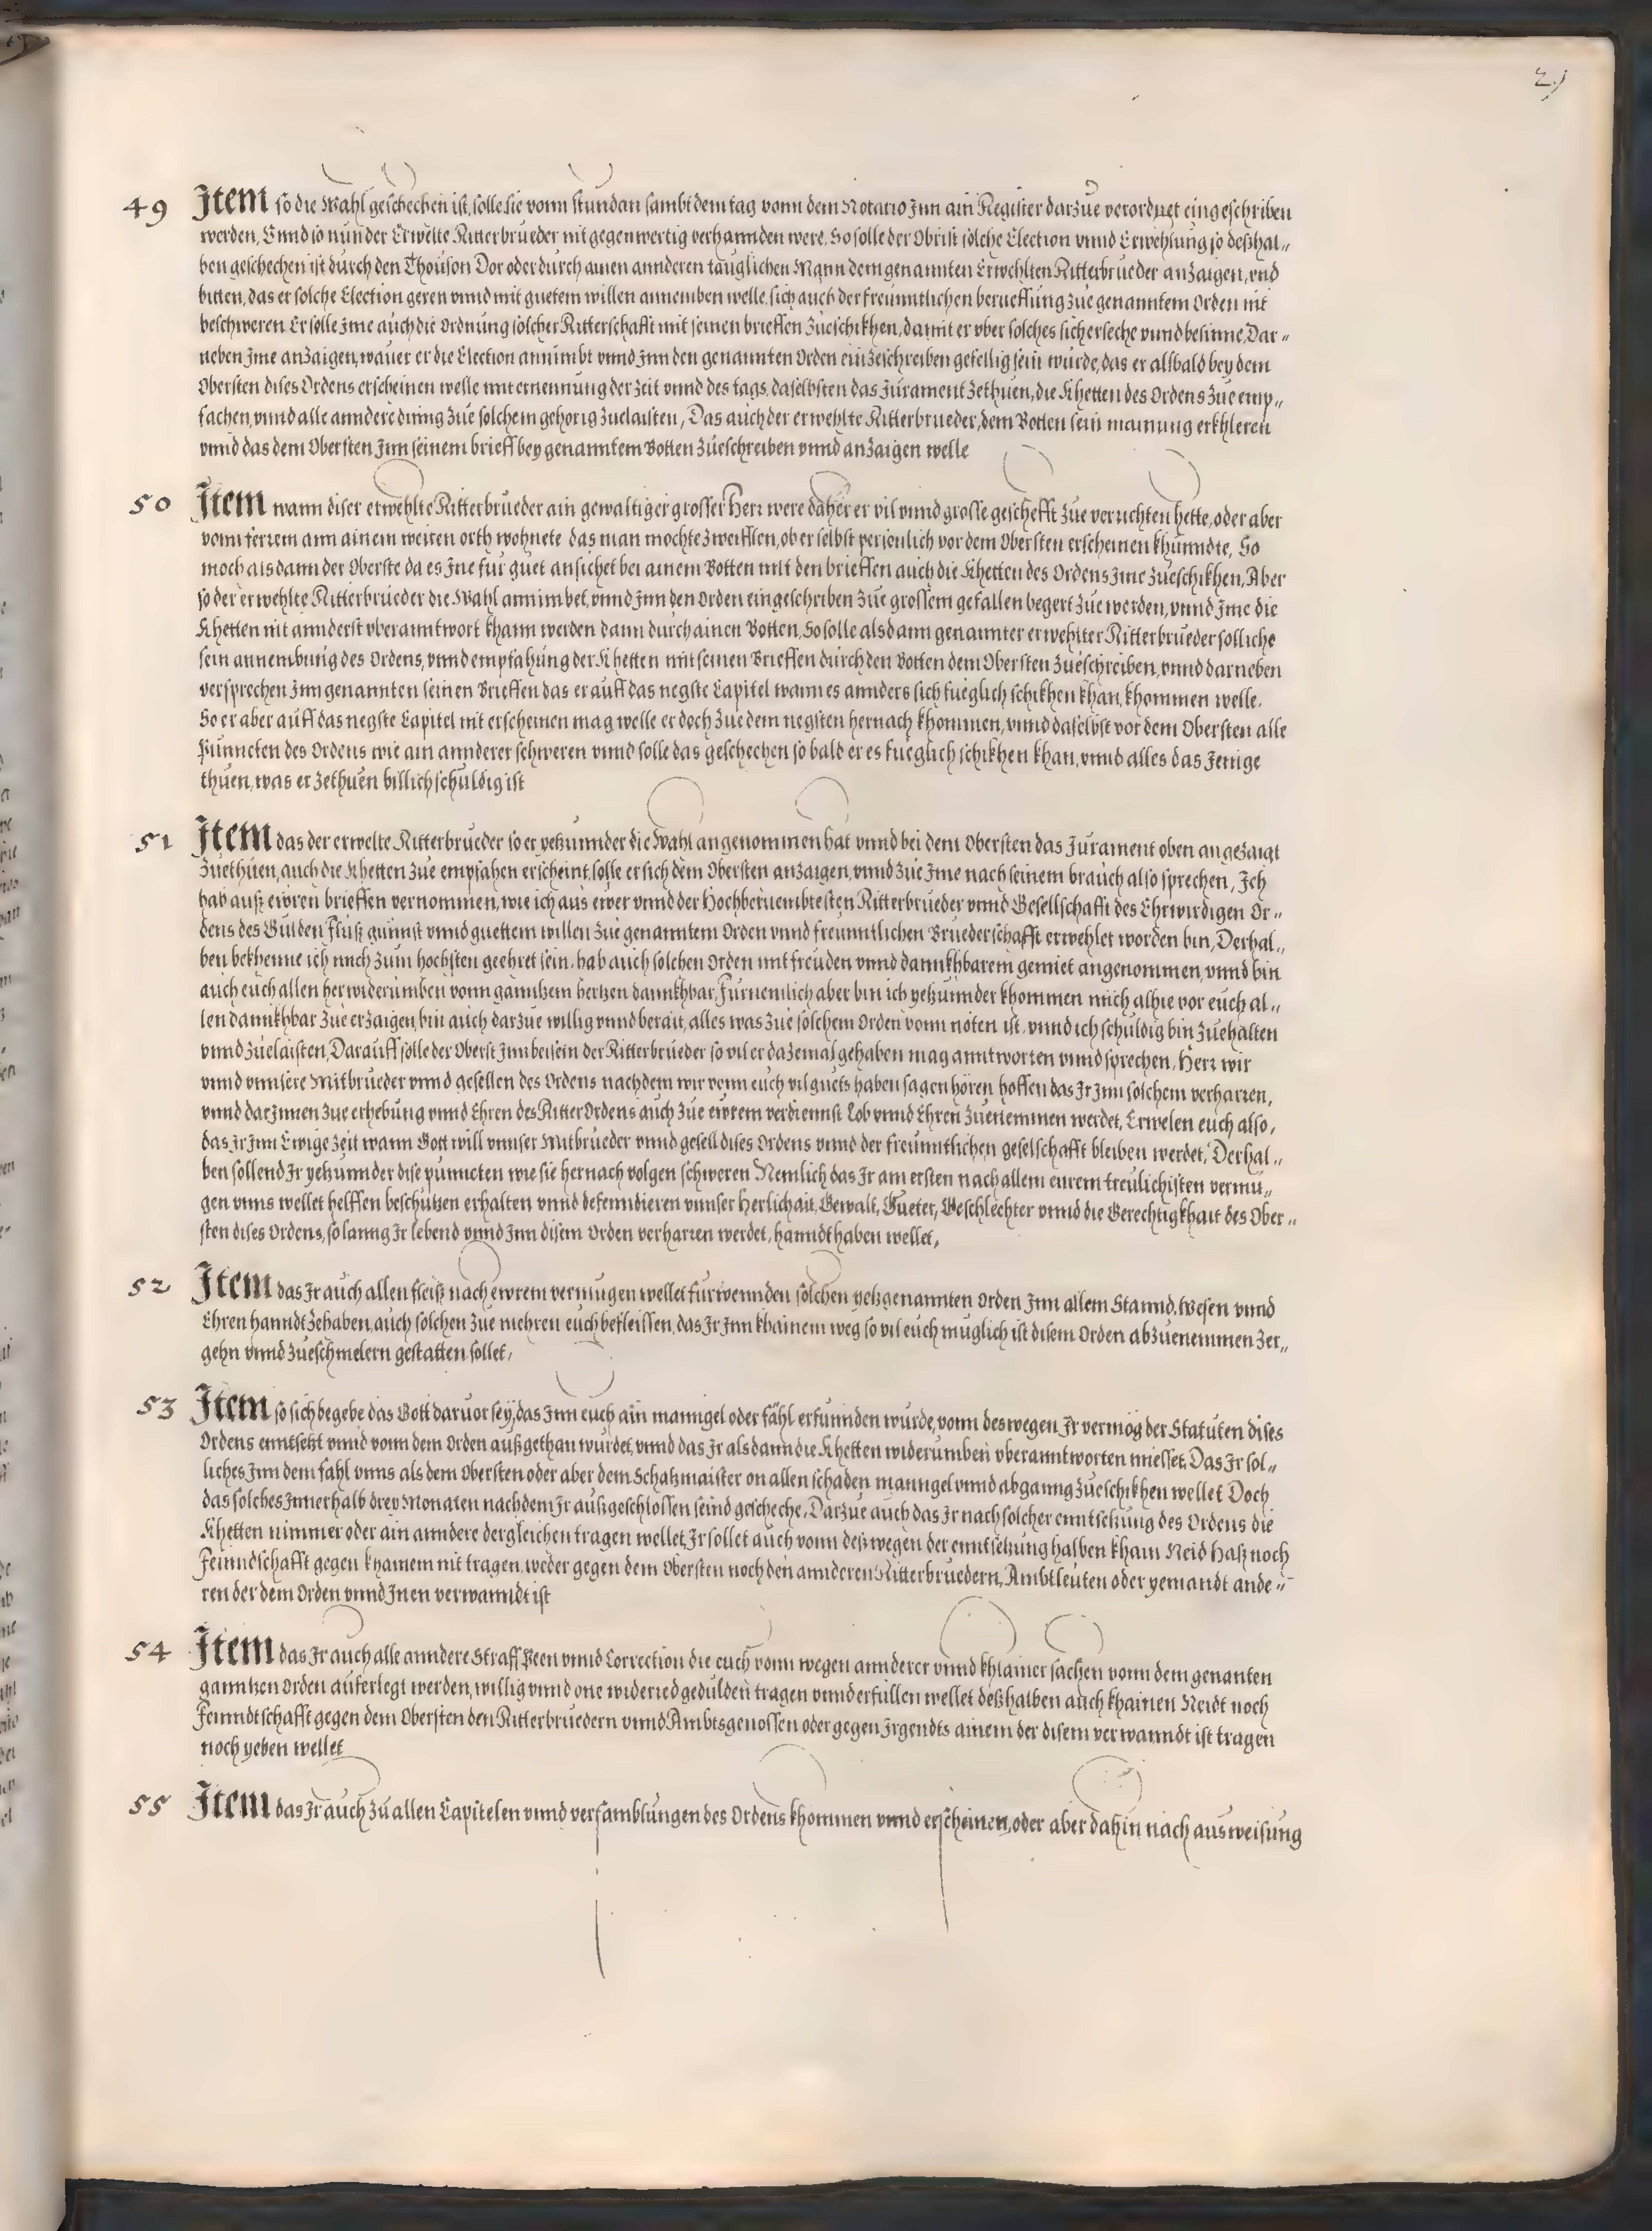 21
49 Item so die Wahl geschechen ist, solle sie vonn stundan sambt dem tag vonn dem Notario Inn ain Register darzue verordnet eingeschriben
werden, Vnnd so nun der Erwelte Ritterbrueder nit gegenwertig verhannden were, So solle der Obrist solche Election vnnd Erwehlung so deßhal„
ben geschechen ist durch den Thouson Dor oder durch ainen annderen tauglichen Mann dem genannten Erwehlten Ritterbrueder anzaigen, vnd
bitten, das er solche Election geren vnnd mit guetem willen annemben welle, sich auch der freunntlichen berueffung zue genanntem Orden nit
beschweren Er solle Ime auch die Ordnung solcher Ritterschafft mit seinen brieffen zueschikhen, damit er vber solches sicher seche vnnd besinne, Dar„
neben Ime anzaigen, wauer er die Election annimbt vnnd Inn den genannten Orden einzeschreiben gefellig sein wurde, das er alsbald bey dem
Obersten dises Ordens erscheinen welle mit ernennung der zeit vnnd des tags, daselbsten das Jurament zethuen, die Khetten des Ordens zue emp„
fachen, vnnd alle anndere dinng zue solchem gehorig zuelaisten, Das auch der erwehlte Ritterbrueder, dem Botten sein mainung erkhleren
vnnd das dem Obersten Inn seinem brieff bey genanntem Botten zueschreiben vnnd anzaigen welle
50 Item wann diser erwehlte Ritterbrueder ain gewaltiger grosser Herr were daher er vil vnnd grosse geschefft zue verrichten hette, oder aber
vonn ferrem ann ainem weiten orth wohnete das man mochte zweifflen, ob er selbst persönlich vor dem Obersten erscheinen khunndte, So
moch alsdann der Oberste da es Ine fur guet ansichet bei ainem Botten mit den brieffen auch die Khetten des Ordens Ime zueschikhen, Aber
so der erwehlte Ritterbrueder die Wahl annimbet, vnnd Inn den Orden eingeschriben zue grossem gefallen begert zue werden, vnnd Ime die
Khetten nit annderst vberanntwort khann werden dann durch ainen Botten, So solle alsdann genannter erwehlter Ritterbrueder solliche
sein annembung des Ordens, vnnd empfahung der Khetten mit seinen Brieffen durch den Botten dem Obersten zueschreiben, vnnd darneben
versprechen Inn genannten seinen Brieffen das er auff das negste Capitel wann es annders sich fueglich schikhen khan, khommen welle,
So er aber auff das negste Capitel nit erscheinen mag welle er doch zue dem negsten hernach khommen, vnnd daselbst vor dem Obersten alle
Punncten des Ordens wie ain annderer schweren vnnd solle das geschechen so bald er es fueglich schikhen khan, vnnd alles das Jenige
thuen, was er zethuen billich schuldig ist
51 Item das der erwelte Ritterbrueder so er yetzunnder die Wahl angenommen hat vnnd bei dem Obersten das Jurament oben angezaigt
zuethuen, auch die Khetten zue empfahen erscheint, solle er sich dem Obersten anzaigen, vnnd zue Ime nach seinem brauch also sprechen, Ich
hab auß ewren brieffen vernommen, wie ich aus ewer vnnd der Hochberuembtesten Ritterbrueder vnnd Gesellschafft des Ehrwirdigen Or„
dens des Gulden Fluß gunnst vnnd guettem willen zue genanntem Orden vnnd freunntlichen Bruederschafft erwehlet worden bin, Derhal„
ben bekhenne ich mich zum hochsten geehret sein, hab auch solchen Orden mit freuden vnnd dannkhbarem gemiet angenommen, vnnd bin
auch euch allen herwiderumben vonn ganntzem hertzen dannkhbar, Furnemlich aber bin ich yetzunnder khommen mich alhie vor euch al„
len dannkhbar zue erzaigen, bin auch darzue willig vnnd berait, alles was zue solchem Orden vonn nöten ist, vnnd ich schuldig bin zuehalten
vnnd zuelaisten, Darauff solle der Oberst Inn beisein der Ritterbrueder so vil er dazemal gehaben mag anntworten vnnd sprechen, Herr wir
vnnd vnnsere Mitbrueder vnnd gesellen des Ordens nachdem wir vonn euch vil guets haben sagen hören hoffen das Ir Inn solchem verharren,
vnnd darinnen zue erhebung vnnd Ehren des Ritter Ordens auch zue ewrem verdiennst Lob vnnd Ehren zuenemmen werdet, Erwelen euch also,
das Ir Inn Ewige zeit wann Gott will vnnser Mitbrueder vnnd gesell dises Ordens vnnd der freunntlichen geselschafft bleiben werdet, Derhal„
ben sollend Ir yetzunnder dise punncten wie sie hernach volgen schweren Nemlich das Ir am ersten nach allem eurem treulichisten vermu„
gen vnns wellet helffen beschutzen erhalten vnnd defenndieren vnnser Herlichait, Gewalt, Gueter, Geschlechter vnnd die Gerechtigkhait des Ober„
sten dises Ordens, so lanng Ir lebend vnnd Inn disem Orden verharren werdet, hanndthaben wellet,
52 Item das Ir auch allen fleiß nach ewrem vermugen wellet furwennden solchen yetzgenannten Orden Inn allem Stannd, wesen vnnd
Ehren hanndtzehaben, auch solchen zue mehren euch befleissen, das Ir Inn khainem weg so vil euch muglich ist disem Orden abzuenemmen zer„
gehn vnnd zueschmelern gestatten sollet,
53 Item so sich begebe das Gott daruor sey, das Inn euch ain manngel oder fahl erfunnden wurde, vonn deswegen Ir vermög der Statuten dises
Ordens enntsetzt vnnd vonn dem Orden außgethan wurdet, vnnd das Ir alsdann die Khetten widerumben vberanntworten miesset, Das Ir sol„
liches Inn dem fahl vnns als dem Obersten oder aber dem Schatzmaister on allen schaden manngel vnnd abganng zueschikhen wellet Doch
das solches Innerhalb drey Monaten nachdem Ir außgeschlossen seind gescheche, Darzue auch das Ir nach solcher enntsetzung des Ordens die
Khetten nimmer oder ain anndere dergleichen tragen wellet, Ir sollet auch vonn deßwegen der enntsetzung halben khain Neid Haß noch
Feinndschafft gegen khainem nit tragen, weder gegen dem Obersten noch den annderen Ritterbruedern, Ambtleuten oder yemandt ande„
ren der dem Orden vnnd Inen verwanndt ist
54 Item das Ir auch alle anndere Straff Peen vnnd Correction die euch vonn wegen annderer vnnd khlainer sachen vonn dem genanten
ganntzen Orden auferlegt werden, willig vnnd one widerred gedulden tragen vnnd erfullen wellet deßhalben auch khainen Neidt noch
Feinndtschafft gegen dem Obersten den Ritterbruedern vnnd Ambtsgenossen oder gegen Irgendts ainem der disem verwanndt ist tragen
noch yeben wellet
55 Item das Ir auch zu allen Capitelen vnnd versamblungen des Ordens khommen vnnd erscheinen, oder aber dahin nach ausweisung